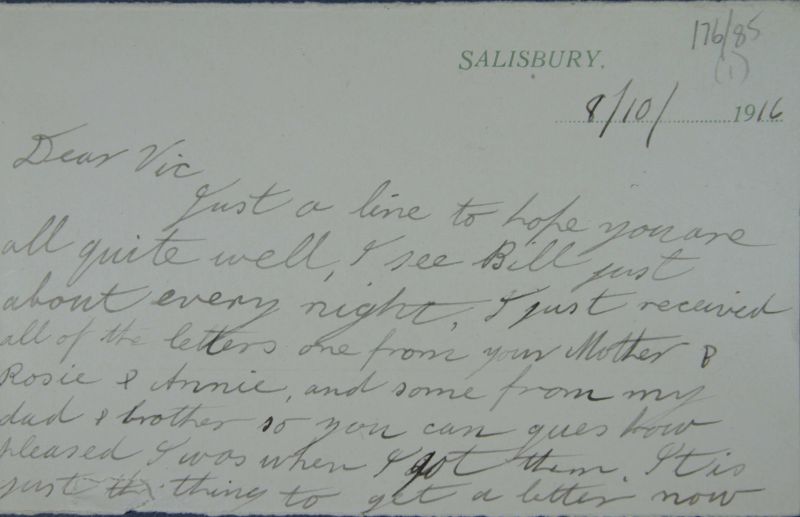 176/85
(1)
SALISBURY.
8/10/ 1916
Dear Vic
Just a line to hope you are
all quite well, I see Bill just
about every night, I just received
all of the letters one from your Mother &
Rosie & Annie, and some from my
dad & brother so you can gues how
pleased I was when I got them. It is
just the thing to get a letter now